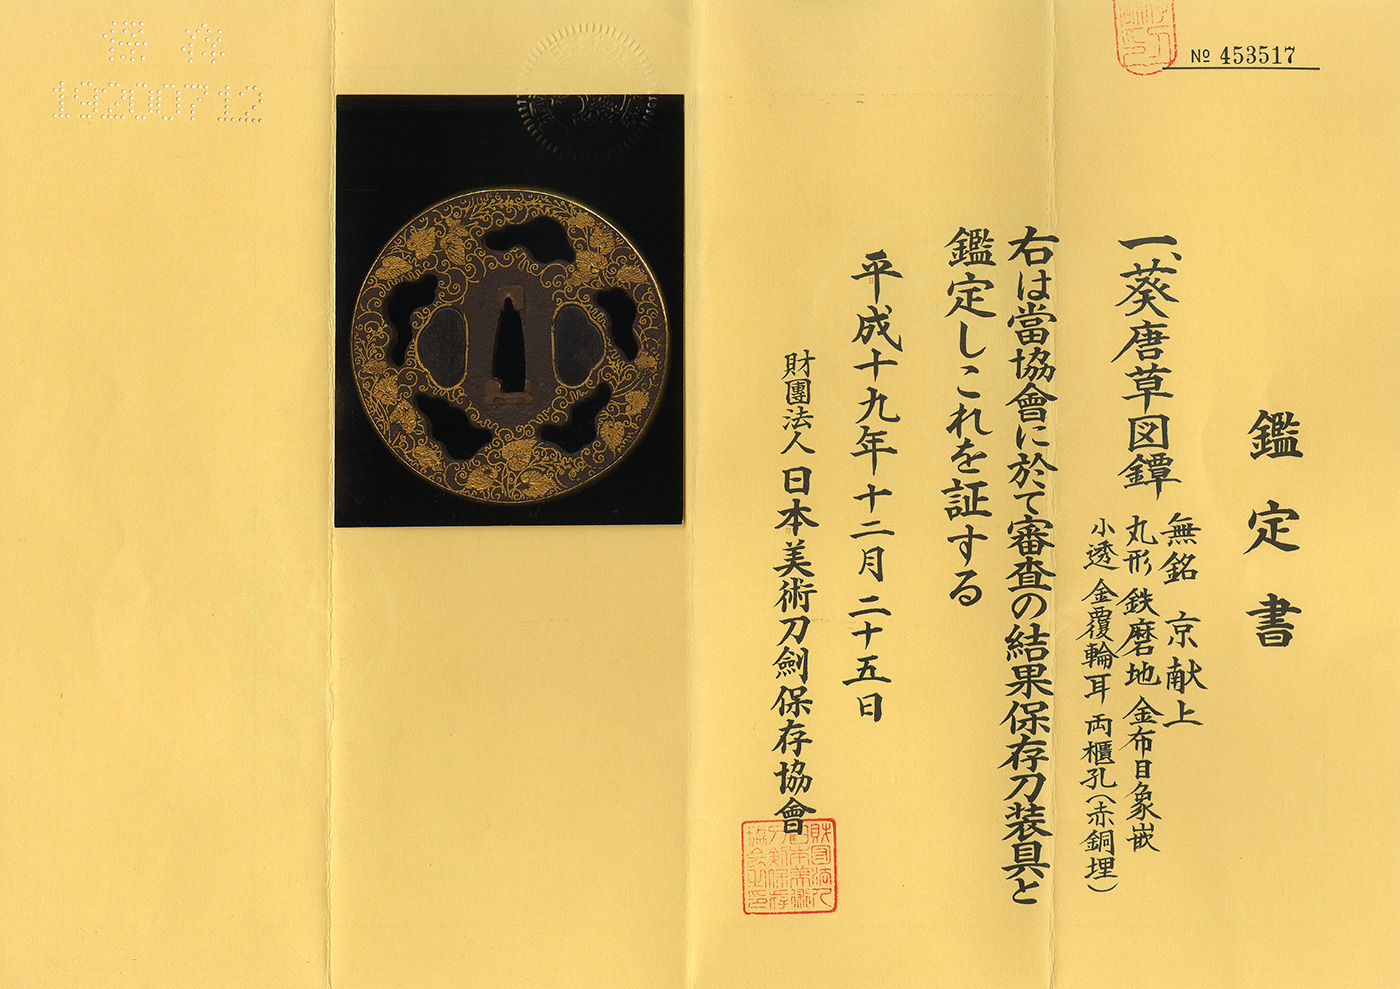 № 453517
鑑定書
一、葵唐草図鐔
無銘 京献上
丸形 鉄磨地 金布目象嵌
小透 金覆輪耳 両櫃孔(赤銅埋)
右は當協會に於て審査の結果保存刀装具と
鑑定しこれを証する
平成十九年十二月二十五日
財團法人 日本美術刀劍保存協會
財団法人
日本美術
刀剣保存
協会之印
保存
19200712